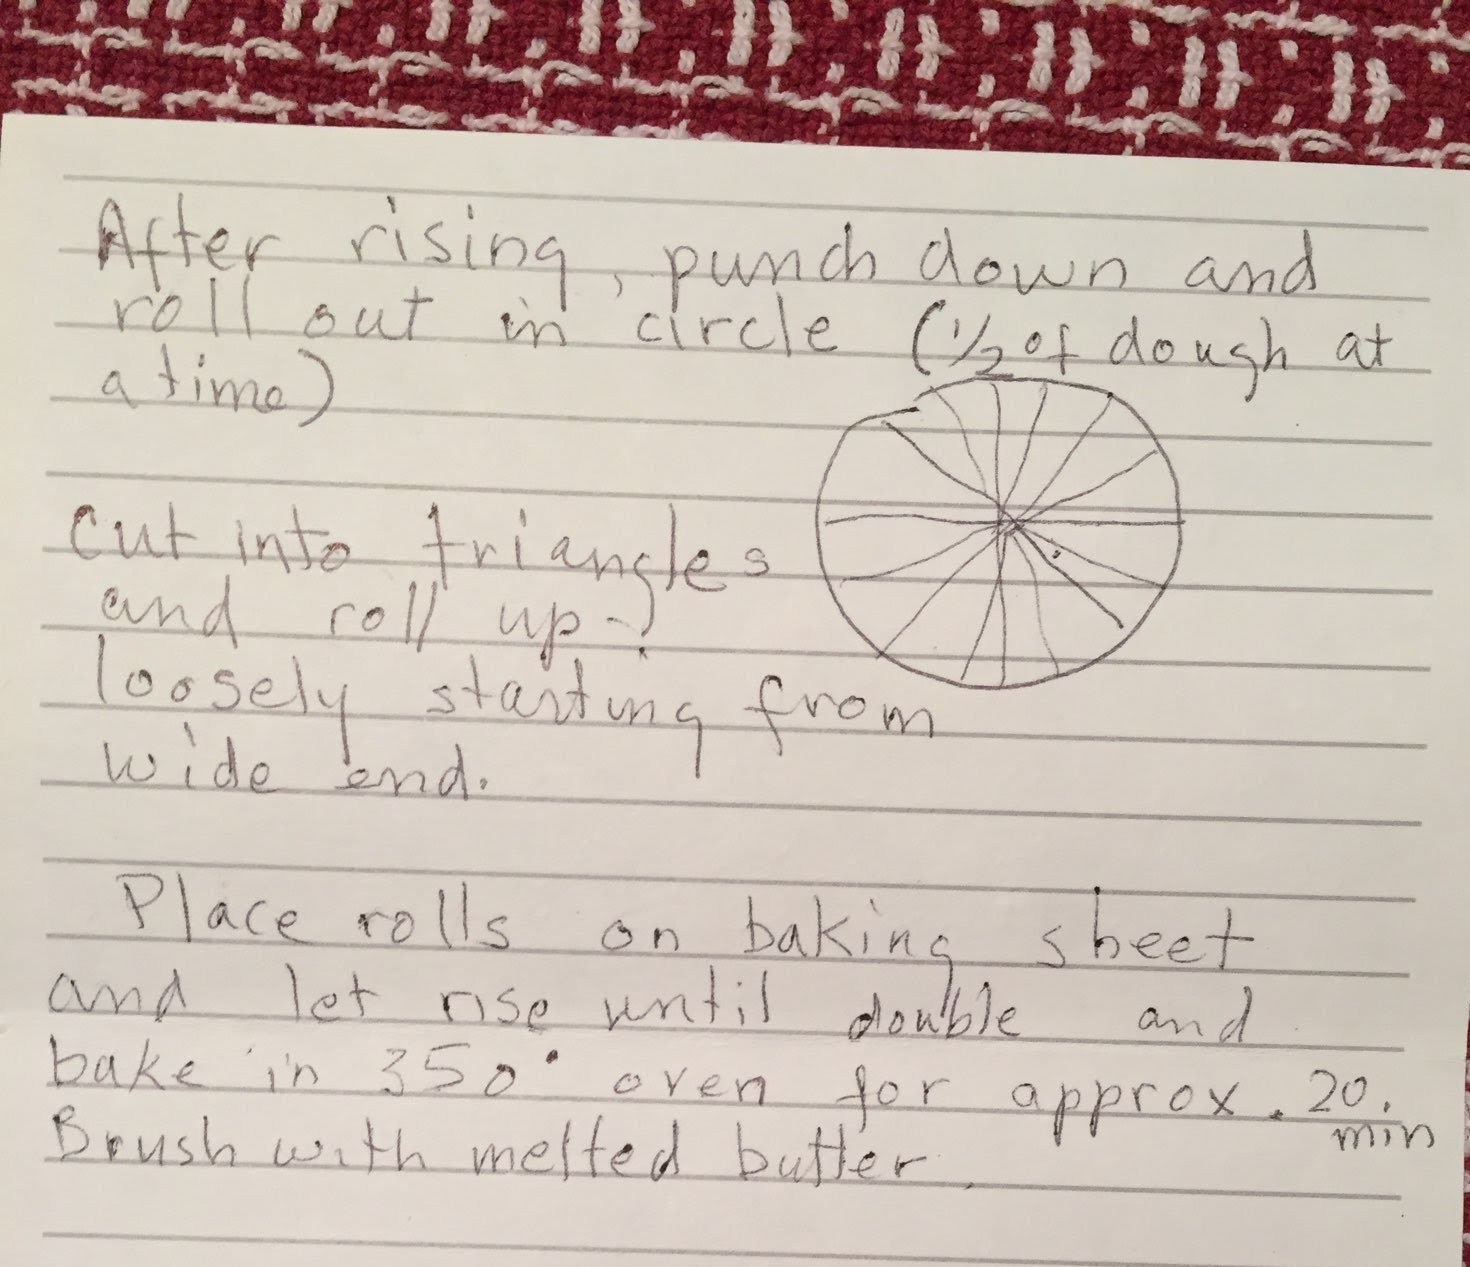 After rising, punch down and
roll out in circle (1/2 of dough at
a time)
Cut into triangles
and roll up -
loosely starting from
wide end.
Place rolls on baking sheet
and let rise until double and
bake in 350° oven for approx. 20.
min
Brush with melted butter.